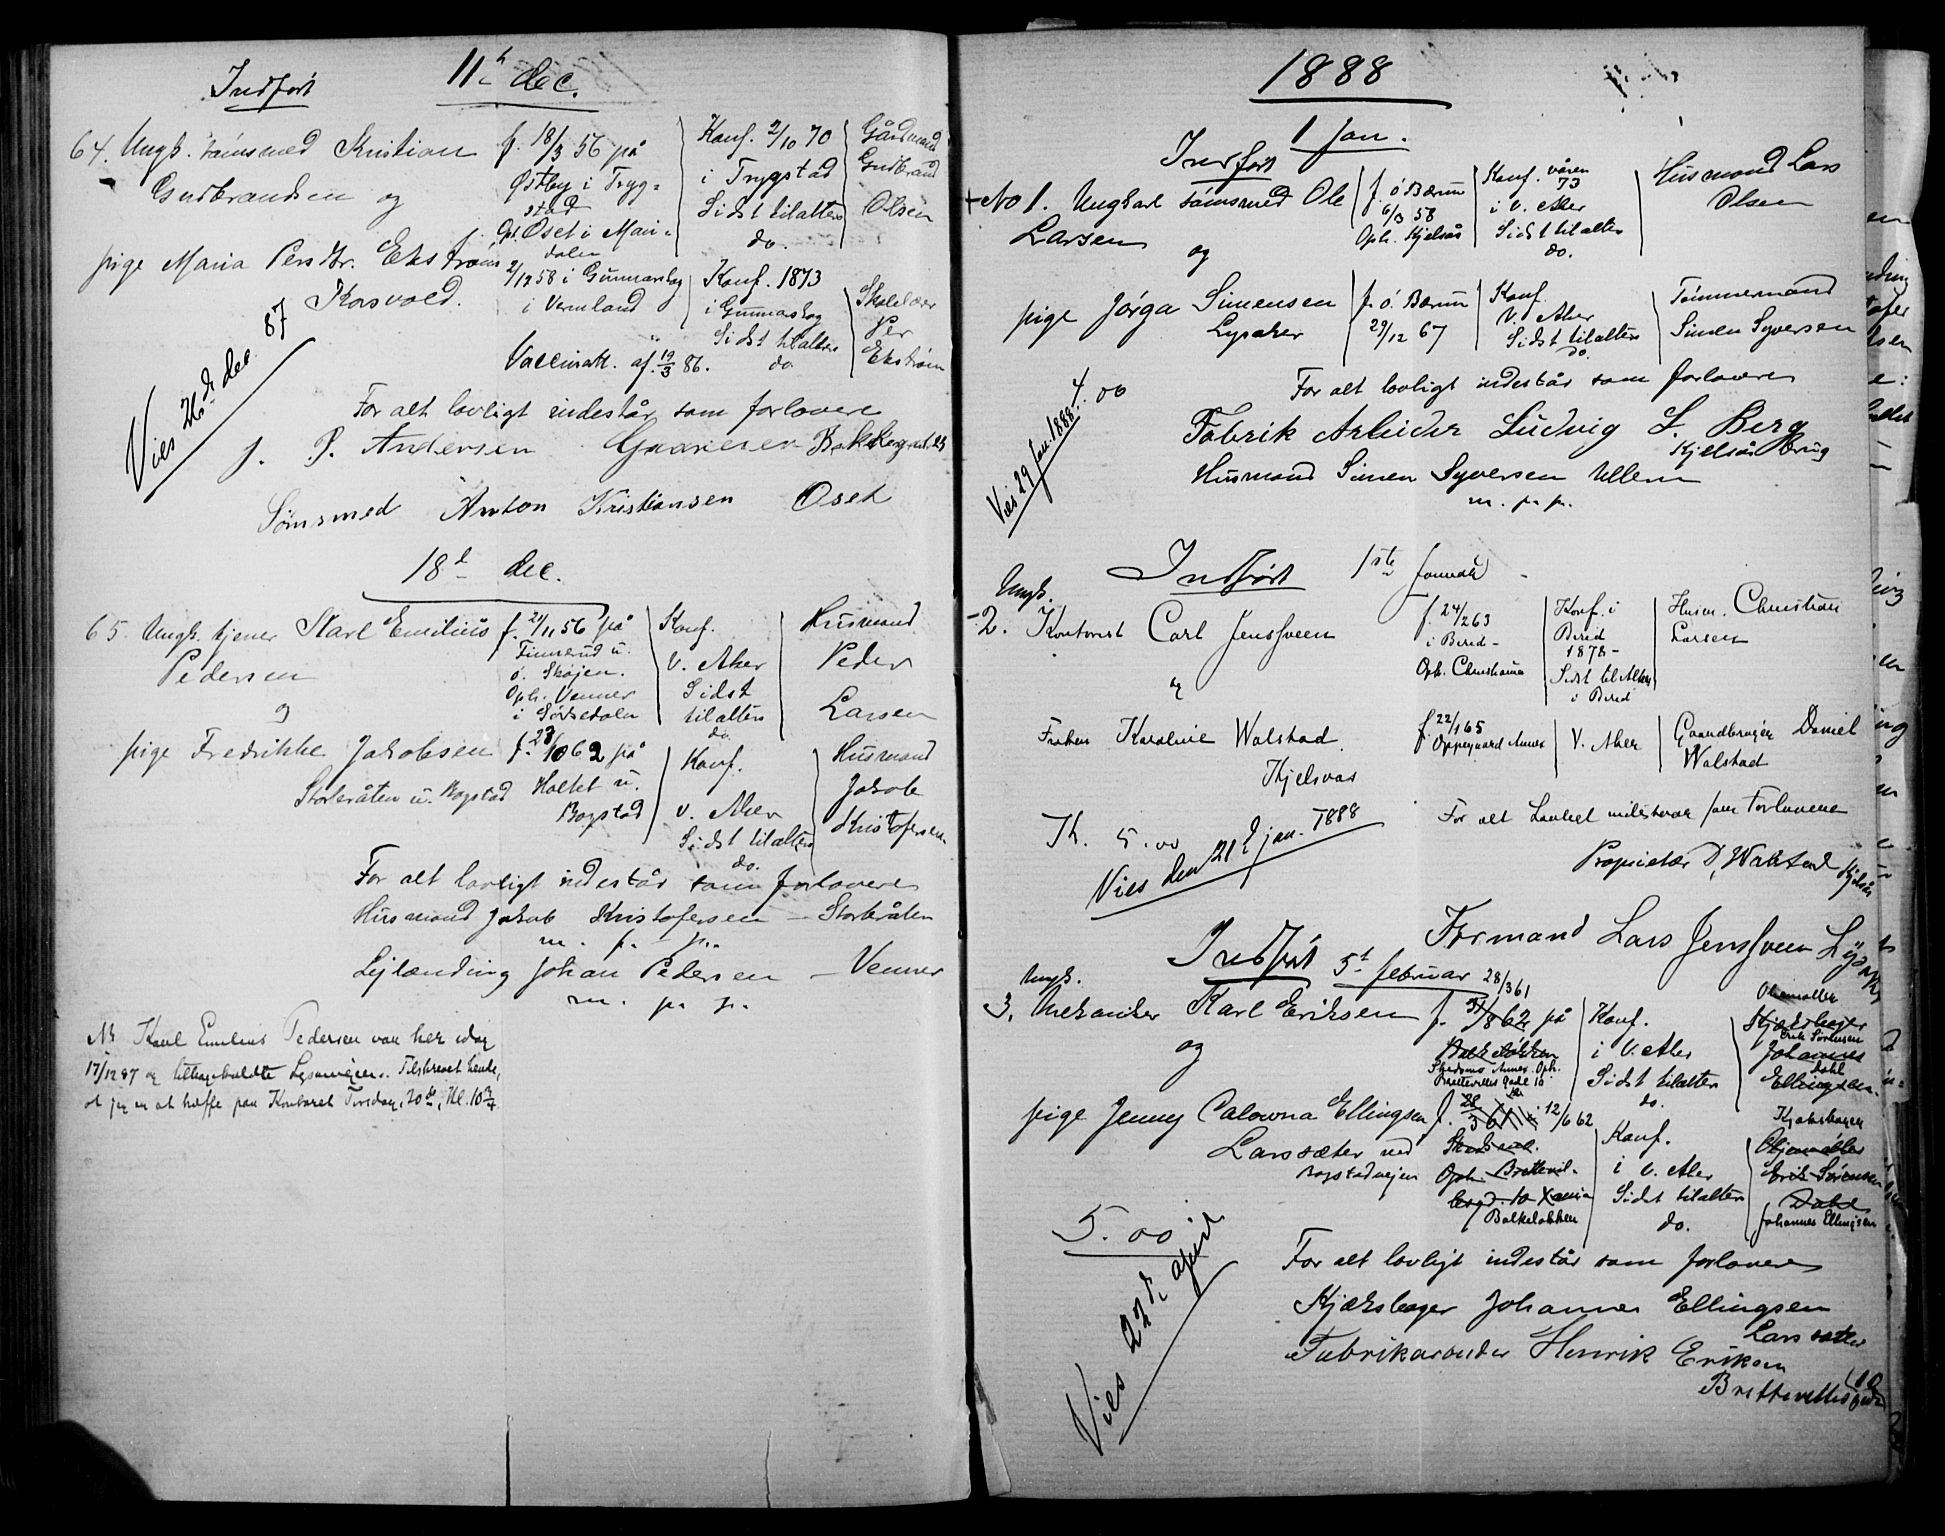 Indført
11te dec.
64. Ungk. sømsmed Kristian
Gudbrandsen og
f. 18/3 56 på
Østby i Tryg-
stad
Oph. Oset i Mari-
dalen
Konf. 2/10 70
i Trygstad
Sidst tilalters
do.
Gårdmand
Gudbrand
Olsen
pige Maria Persdtr. Ekstrøm
Korsvold.
2/12 58 i Gunnarskog
i Vermland
Vaccinatt. af. 19/3 86.
Konf. 1873
i Gunnarskog
Sidst tilalters
do
Skolelærer
Per
Ekstrøm
Vies 26de dec. 87
For alt lovligt indestår som forlovere
J. P. Andersen
Sømsmed Anton Kristiansen Oset
18de dec.
65. Ungk. tjener Karl Emilius
Pedersen
og
f. 21/11 56 på
Finnerud u.
ö. Skøjen.
Oph. Venner
i Sørkedalen
Konf.
V. Aker
Sidst
tilalters
do
Husmand
Peder
Larsen
pige Fredrikke Jakobsen
Storbråten u. Bogstad
f. 23/10 62 på
Holtet u.
Bogstad
Konf.
v. Aker
Sidst tilalters
do.
Husmand
Jakob
Kristofersen
For alt lovligt indestår som forlovere
Husmand Jakob Kristofersen – Storbråten
m. p. p.
Lejlænding Johan Pedersen – Venner
m. p. p.
NB Karl Emilius Pedersen var her idag
17/12 87 og tilbagekaldte Lysningen. Tilskrevet hende,
at jeg er at træffe paa Kontoret Tirsdag, 20de, Kl. 10
1888
1 Jan.
Indført
No 1. Ungkarl sømsmed Ole
Larsen
og
f. ö. Bærum
6/3 58
Oph. Kjelsås
Konf. våren
73
i V. Aker
Sidst tilalters
do.
Husmand Lars
Olsen
pige Jørga Simensen
Lysaker
f. ö. Bærum
29/12 67
Konf.
V. Aker
Sidst tilalters
do.
Tømmermand
Simen Syversen
4.00
Vies 29 Jan. 1888.
For alt lovligt indestår som forlovere
Fabrik Arbeider Ludvig L. Berg
Kjelsås Brug
Husmand Simen Syversen Ullern
m. p. p.
Indført 1ste januar
Ungk.
2. Kontorist Carl Jenssveen
og
f. 24/2 63
i Bered –
Oph. Christiania
Konf. i
Bered
1878 –
Sidst til Alters
i Bered
Husm. Christian
Larsen
Frøken Karoline Walstad
Kjelsaas
f. 22/1 65
Oppegaard Annex
V. Aker
Gaardbruger Daniel
Walstad
Th. 5.00
Vies den 21de jan. 1888
For alt Lovligt indestaar som Forlovere
Proprietær D. Walstad Kjelsås
Formand Lars Jenssveen
Indført 5te februar
Ungk.
3. Mekaniker Karl Eriksen
og
28/3 61
på
Balkeløkken
Skedsmo Annex. Oph.
Brettevilles Gade 10
Konf.
i V. Aker
Sidst tilalters
do.
Oliemøller
Kjæksbager
Erik Sørensen
Johannes
Dahl
Ellingsen.
pige Jenny Calowna Ellingsen
Larssæter ved
Bogstadvejen
12/6 62
Oph. Brettevil-
Balkeløkken
Konf.
i V. Aker
Sidst tilalters
do.
Kjæksbager
Oljemøller
Erik Sørensen
Dahl
Johannes Ellingsen
5.00
Vies 22de april
For alt lovligt indestår som forlovere
Kjæksbager Johannes Ellingsen
Larssæter
Fabrikarbeider Henrik Eriksen
Brettevillesgade 10